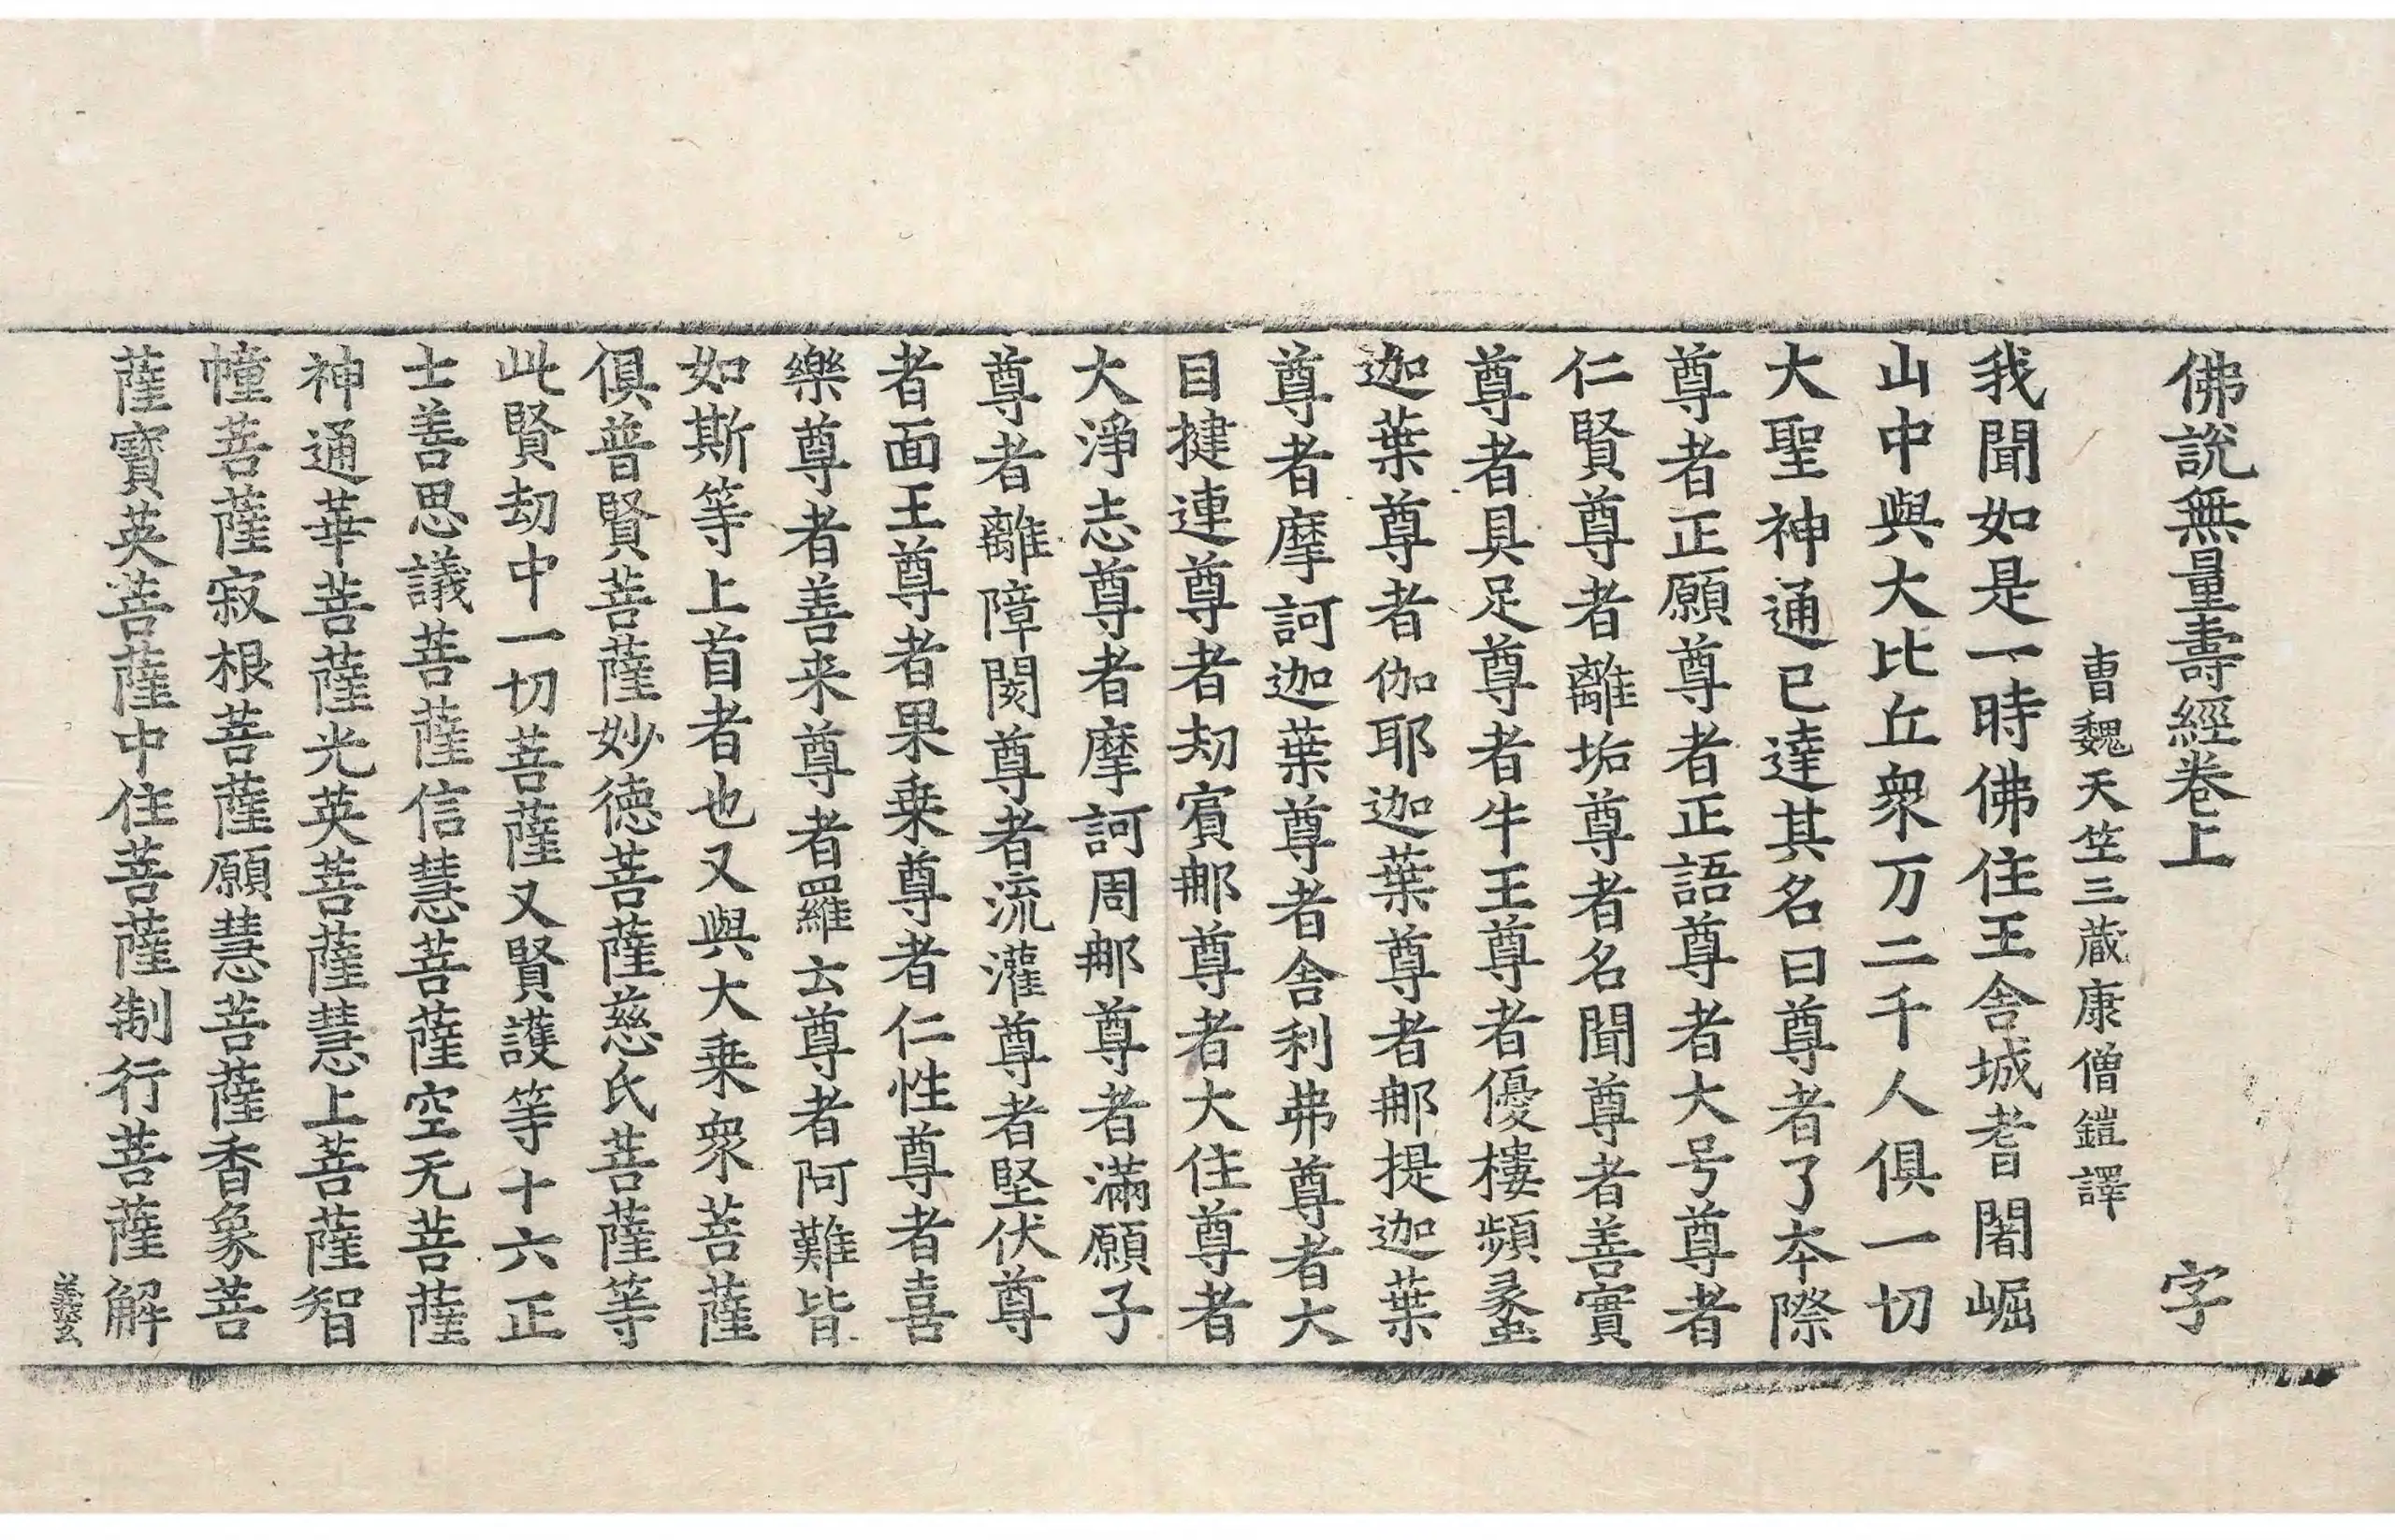 佛說無量壽經卷上　字
曹魏天竺三蔵康僧鎧譯
我聞如是一時佛住王舍城耆闍崛
山中與大比丘衆万二千人俱一切
大聖神通已達其名曰尊者了本際
尊者正願尊者正語尊者大号尊者
仁賢尊者離垢尊者名聞尊者善實
尊者具足尊者牛王尊者優樓頻蠡
迦葉尊者伽耶迦葉尊者那提迦葉
尊者摩訶迦葉尊者舍利弗尊者大
目揵連尊者劫賓那尊者大住尊者
大淨志尊者摩訶周那尊者滿願子
尊者離障閡尊者流灌尊者堅伏尊
者面王尊者果乗尊者仁性尊者喜
樂尊者善来尊者羅云尊者阿難皆
如斯等上首者也又與大乗衆菩薩
俱普賢菩薩妙德菩薩慈氏菩薩等
此賢劫中一切菩薩又賢護等十六正
士善思議菩薩信慧菩薩空无菩薩
神通華菩薩光英菩薩慧上菩薩智
幢菩薩寂根菩薩願慧菩薩香象菩
薩寶英菩薩中住菩薩制行菩薩解